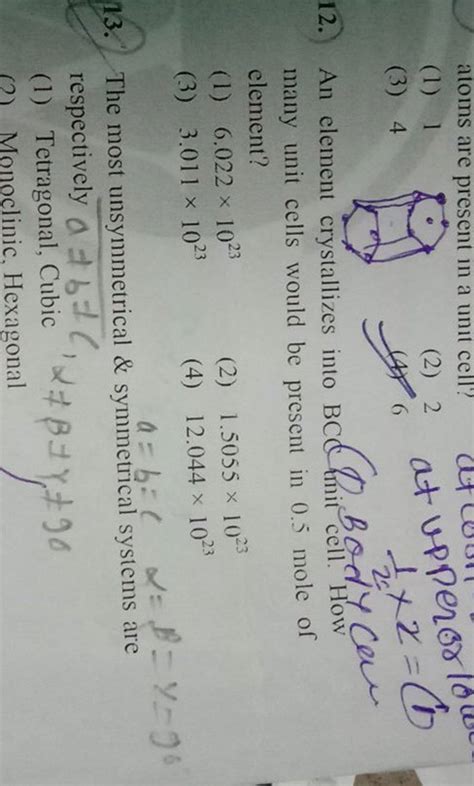 atoms are present in a unit cell?
(1) 1 (2) 2
(3) 4 (4) 6
at upper or
1/2 × 2 = (1)
(1) Body
12. An element crystallizes into BCC unit cell. How
many unit cells would be present in 0.5 mole of
element?
(1) 6.022 × 10²³ (2) 1.5055 × 10²³
(3) 3.011 × 10²³ (4) 12.044 × 10²³
a = b = c α = β = γ = 90
13. The most unsymmetrical & symmetrical systems are
respectively a ≠ b ≠ c, α ≠ β ≠ γ ≠ 90
(1) Tetragonal, Cubic
(2) Monoclinic, Hexagonal